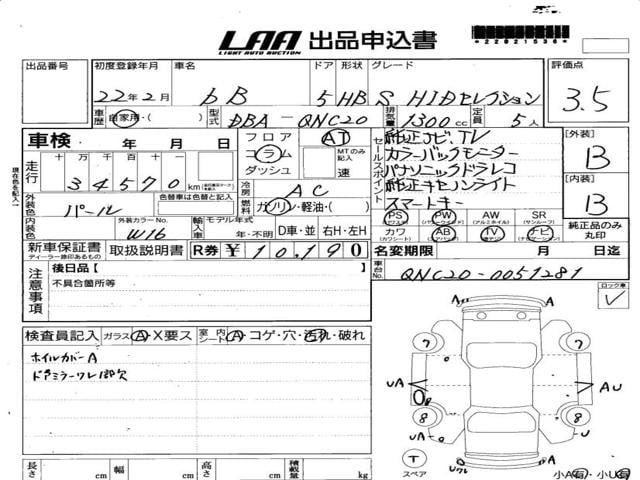 LAA 出品申込書
LIGHT AUTO AUCTION
*22021536*
出品番号 初度登録年月 車名 ドア 形状 グレード 評価点
22年2月 bB 5 HB S HIDセレクション 3.5
車歴 自家用・( 型式 DBA-QNC20 排気量 1300cc 定員 5人
車検 年 月 日 フロア AT
コラム MTのみ記入
ダッシュ 速
セールスポイント
純正ナビ、TV
カラーバックモニター
パナソニックドラレコ
純正キセノンライト
スマートキー
[外装] B
[内装] B
現在色を記入
走行 十 万 千 百 十
34570km
冷房 AC
外装色 パール 色替車は色替と記入 燃料 ガソリン・軽油・( )
内装色 外装カラーNo. W16 輸入車 モデル年式 年・不明 D車・並 右H・左H
PS PW AW SR
(パワステ) (パワーウィンドウ) (アルミホイル) (サンルーフ)
カワ AB TV ナビ
(カワシート) (エアバッグ)
純正品のみ丸印
新車保証書 取扱説明書 R券 ¥10,190 名変期限 月 日迄
ディーラー捺印あるもの
車台No. QNC20-0051281
注意事項 後日品[ ]
不具合箇所等
ロック車
検査員記入 ガラス A・X要ス 室内シート A・コゲ・穴・汚れ・破れ
ホイルカバーA
ドアミラーワレ1部欠
A A
7 7
UA AU
8
8 8
UA U
T
スペア
Uワレ A
小A有・小U有
長さ cm 幅 cm 高さ cm 積載量 kg